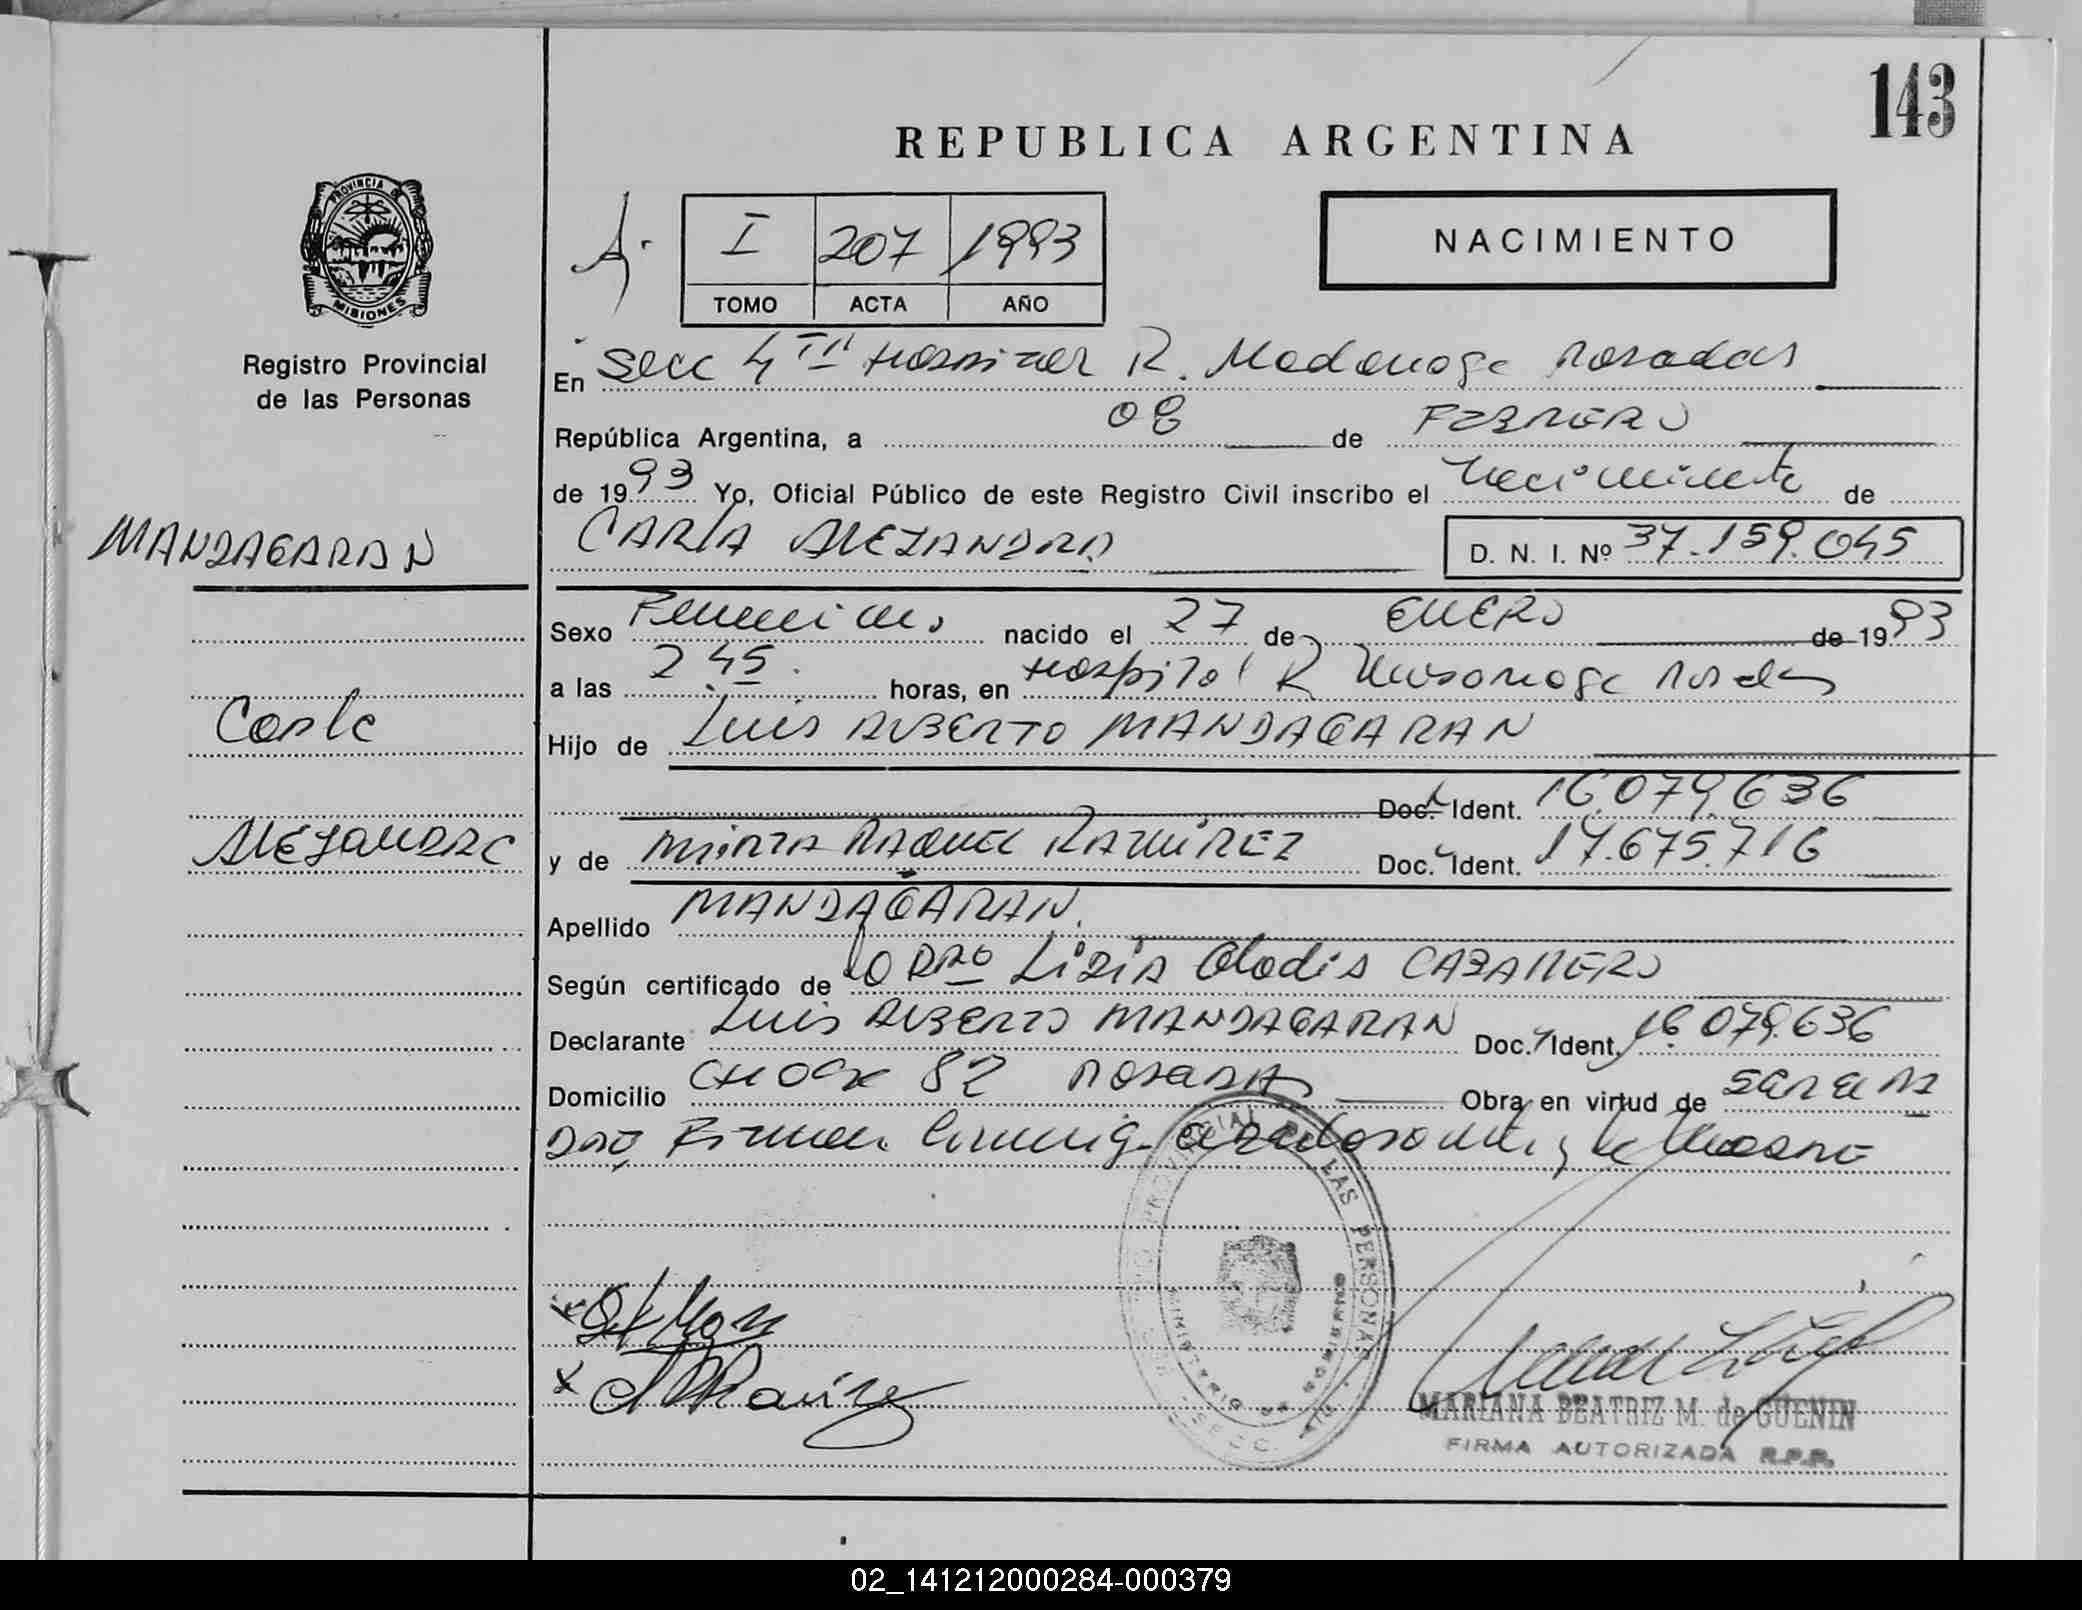 143
REPUBLICA ARGENTINA
PROVINCIA DE
MISIONES
I 207 1993
TOMO ACTA AÑO
NACIMIENTO
Registro Provincial
de las Personas
En Secc 4 Hospital R. Madariaga Posadas
República Argentina, a 08 de FEBRERO
de 1993 Yo, Oficial Público de este Registro Civil inscribo el Nacimiento de
MANDAGARAN
CARLA ALEJANDRA
D. N. I. Nº 37.159.045
Sexo Femenino nacido el 27 de ENERO de 1993
a las 2 45. horas, en Hospital R Madariaga Posadas
Carla
Hijo de Luis ALBERTO MANDAGARAN
Doc. Ident. 16.079.636
Alejandra
y de MIRTA RAQUEL RAMIREZ Doc. Ident. 17.675.716
Apellido MANDAGARAN.
Según certificado de Lidia Gladis CABALLERO
Declarante Luis ALBERTO MANDAGARAN Doc. Ident. 16.079.636
Domicilio 82 POSADAS Obra en virtud de
la Madre
LAS PERSONAS
MINISTERIO DE GOBIERNO
MARIANA BEATRIZ M. de GUENIN
FIRMA AUTORIZADA R.P.P.
02_141212000284-000379